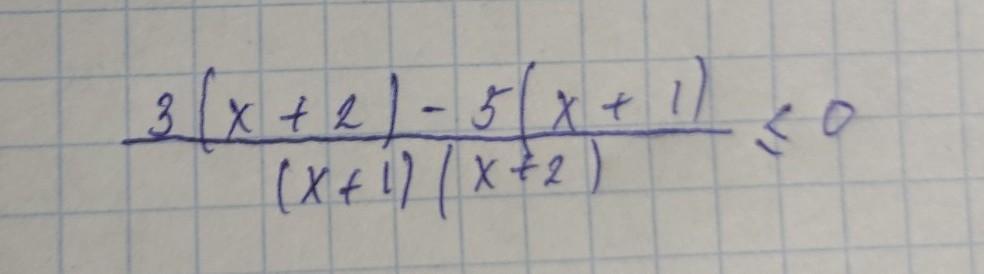 3(x+2)-5(x+1)
(x+1)(x+2) ≤ 0